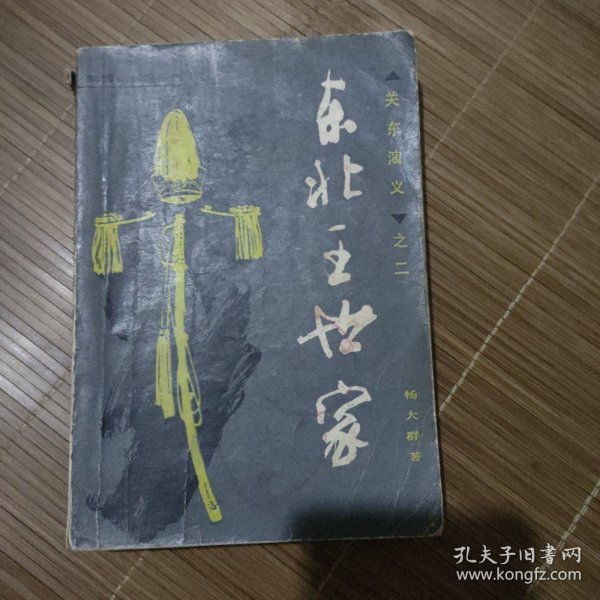 东北王世家
关东演义 之二
杨大群著
孔夫子旧书网
www.kongfz.com